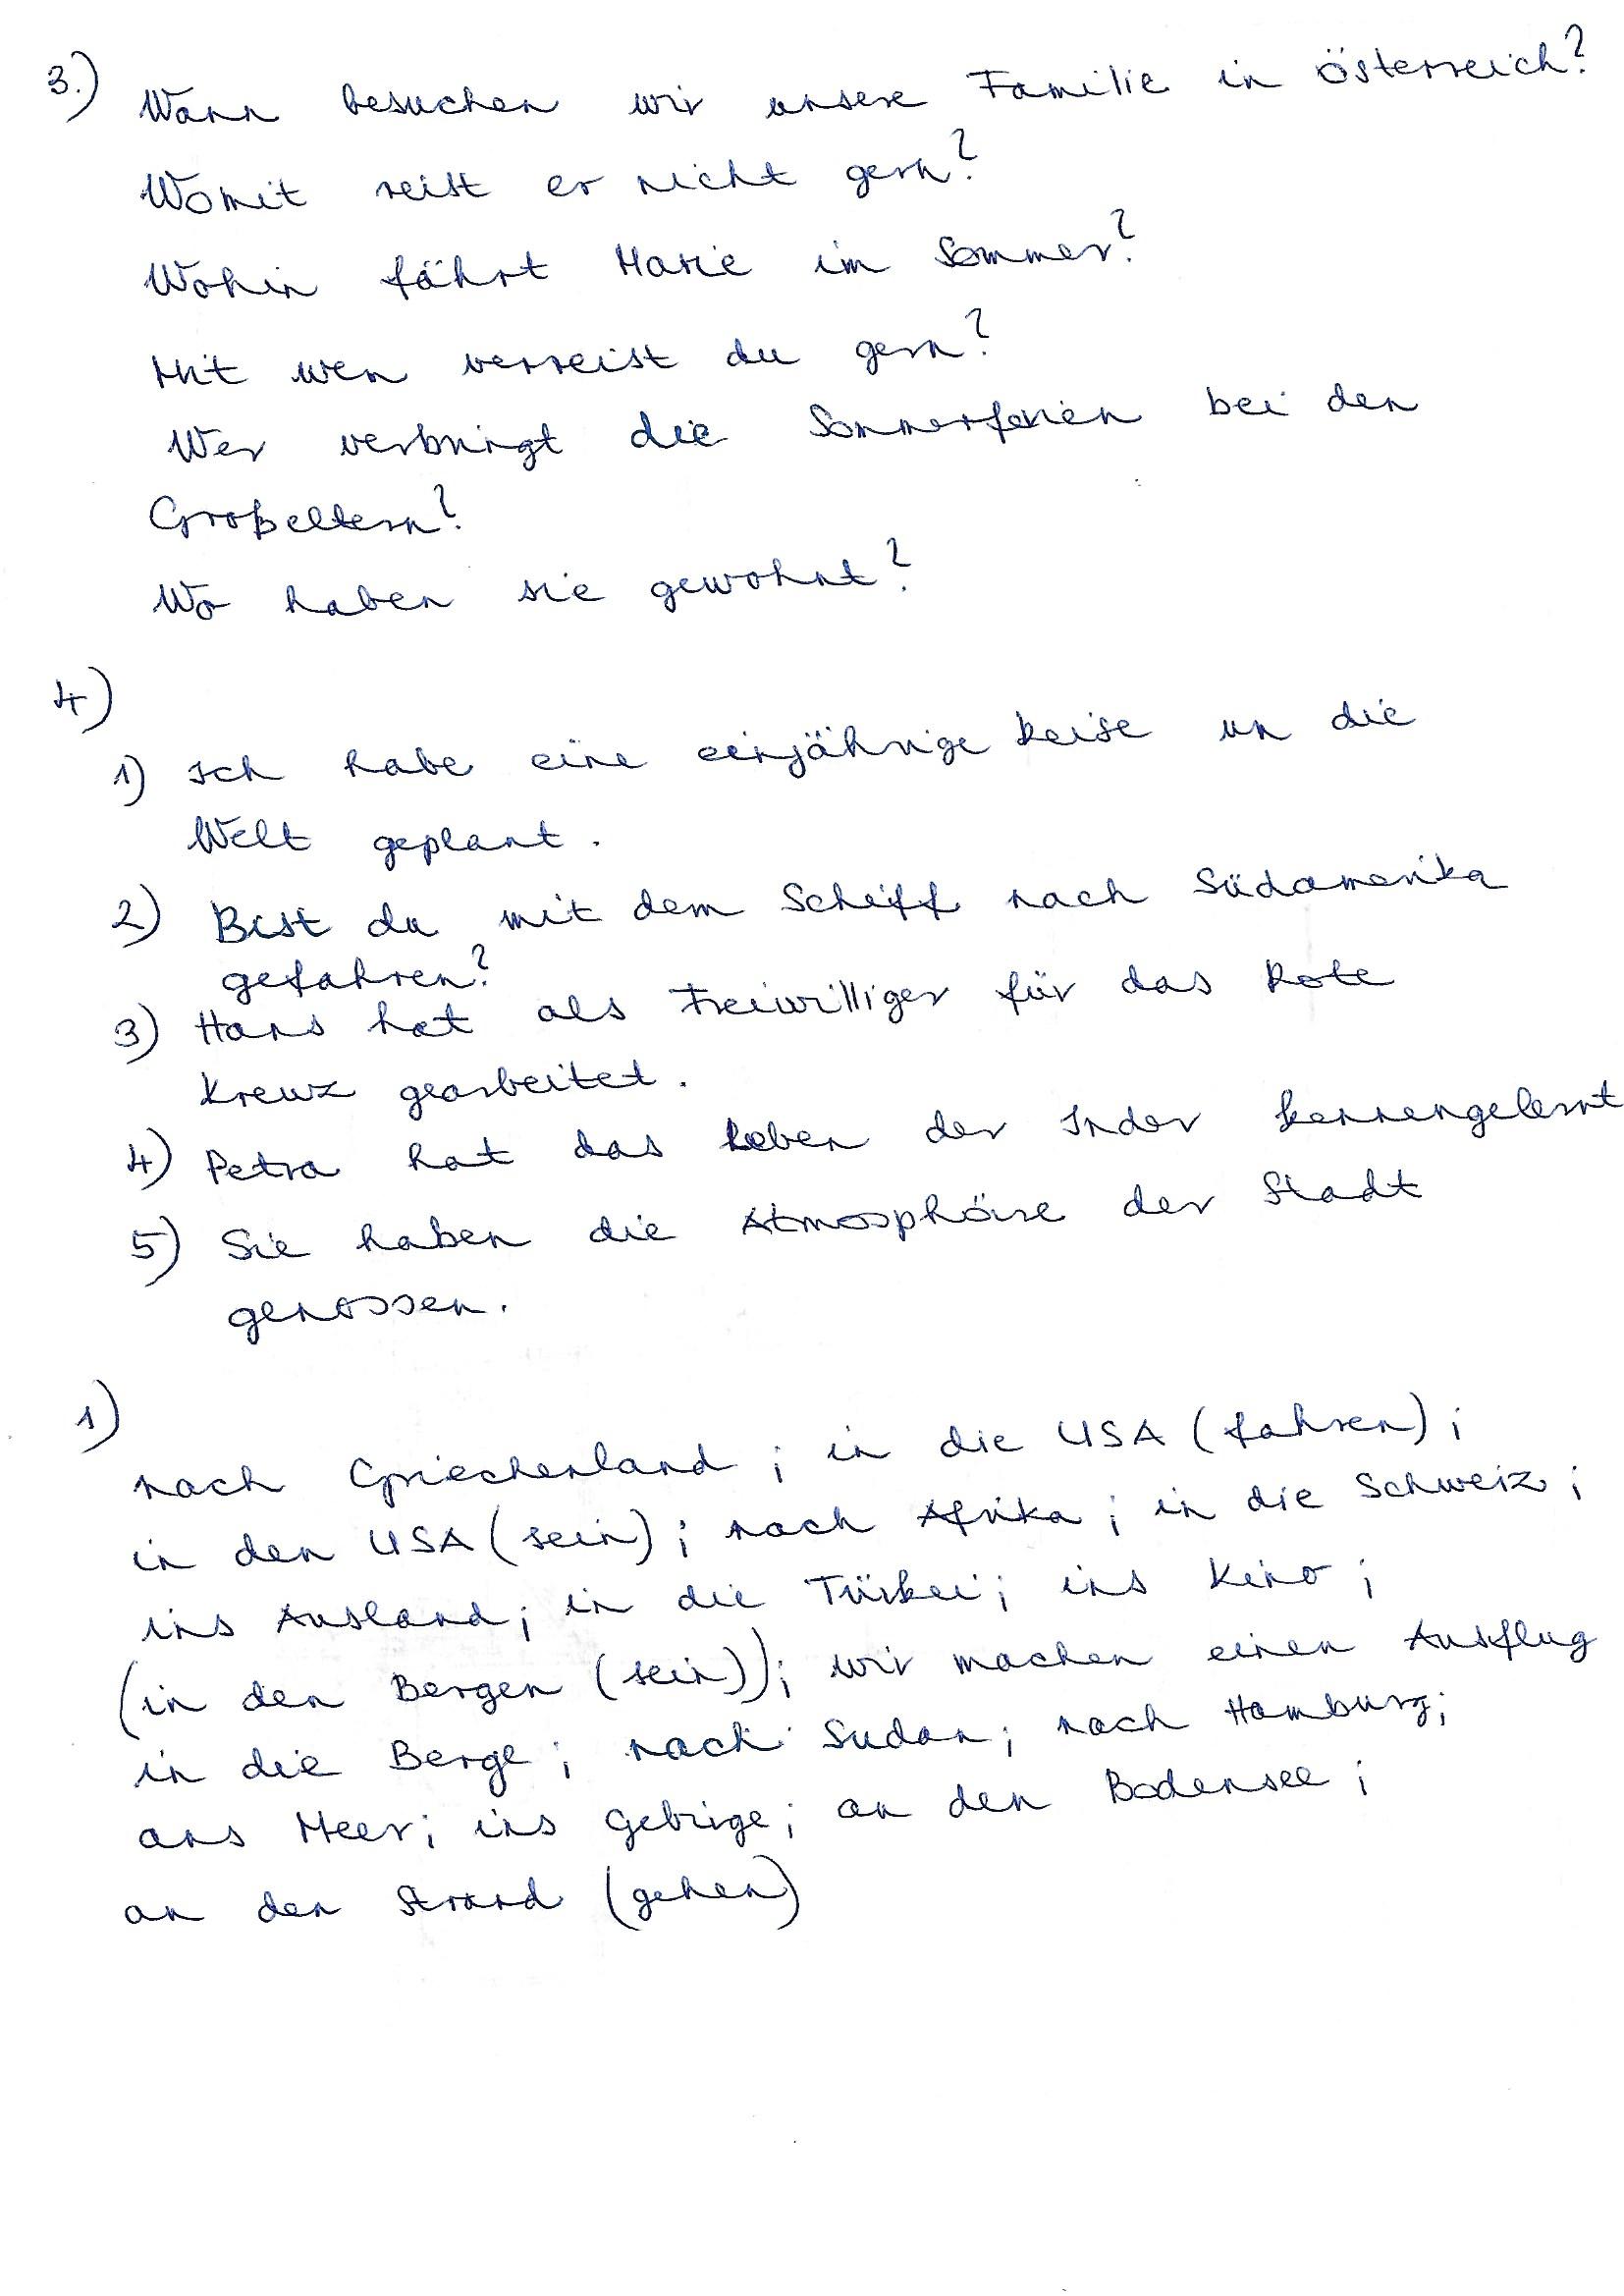 3.) Wann besuchen wir unsere Familie in Österreich?
Womit reist er nicht gern?
Wohin fährt Marie im Sommer?
Mit wen verreist du gern?
Wer verbringt die Sommerferien bei den
Großeltern?
Wo haben sie gewohnt?
4)
1) Ich habe eine einjährige Reise um die
Welt geplant.
2) Bist du mit dem Schiff nach Südamerika
gefahren?
3) Hans hat als Freiwilliger für das Rote
Kreuz gearbeitet.
4) Petra hat das Leben der Inder kennengelernt
5) Sie haben die Atmosphäre der Stadt
genossen.
1)
nach Griechenland; in die USA (fahren);
in den USA (sein); nach Afrika; in die Schweiz;
ins Ausland; in die Türkei; ins Kino;
(in den Bergen (sein)); wir machen einen Ausflug
in die Berge; nach Sudan; nach Hamburg;
ans Meer; ins Gebirge; an den Bodensee;
an den Strand (gehen)